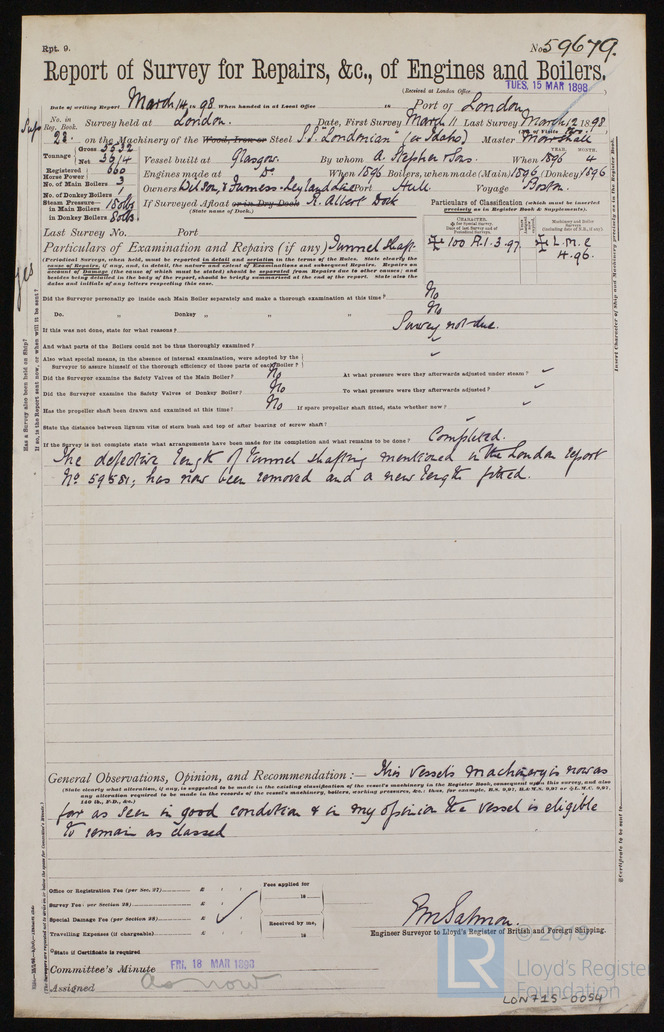 Rpt. 9.
No. 59679.
Report of Survey for Repairs, &c., of Engines and Boilers.
(Received at London Office TUES. 15 MAR 1898 )
Date of writing Report March 14 1898 When handed in at Local Office 18 Port of London
No. in Reg. Book. Survey held at London. Date, First Survey March 11 Last Survey March 12 1898
(No. of Visits
Sup 28. on the Machinery of the Wood, Iron or Steel S.S. "Londonian" (ex Idaho) Master Marshall
Tonnage Gross 5532 Net 3614
Vessel built at Glasgow. By whom A. Stephen & Sons. When 1896 YEAR. MONTH. 4
Registered Horse Power 660
Engines made at Do. When 1896 Boilers, when made (Main) 1896 (Donkey) 1896.
No. of Main Boilers 3
No. of Donkey Boilers 1
Owners Wilson's & Furness-Leyland Line Port Hull. Voyage Boston.
Steam Pressure— in Main Boilers 180 lbs
in Donkey Boilers 80 lbs.
If Surveyed Afloat or in Dry Dock R. Albert Dock
(State name of Dock.)
Particulars of Classification (which must be inserted precisely as in Register Book & Supplements).
Last Survey No. Port
CHARACTER.
100 A.1. 3.97.
L.M.C 4.96.
Particulars of Examination and Repairs (if any) Tunnel Shaft.
(Periodical Surveys, when held, must be reported in detail and seriatim in the terms of the Rules. State clearly the
cause of Repairs, if any, and, in detail, the nature and extent of Examinations and subsequent Repairs. Repairs on
account of Damage (the cause of which must be stated) should be separated from Repairs due to other causes; and
besides being detailed in the body of the report, should be briefly summarised at the end of the report. State also the
dates and initials of any letters respecting this case.
Did the Surveyor personally go inside each Main Boiler separately and make a thorough examination at this time? No
Do. „ Donkey „ „ „ No
If this was not done, state for what reasons? Survey not due.
And what parts of the Boilers could not be thus thoroughly examined?
Also what special means, in the absence of internal examination, were adopted by the
Surveyor to assure himself of the thorough efficiency of those parts of each Boiler?
Did the Surveyor examine the Safety Valves of the Main Boiler? No At what pressure were they afterwards adjusted under steam?
Did the Surveyor examine the Safety Valves of Donkey Boiler? No To what pressure were they afterwards adjusted?
Has the propeller shaft been drawn and examined at this time? No If spare propeller shaft fitted, state whether new?
State the distance between lignum vitæ of stern bush and top of after bearing of screw shaft?
If the Survey is not complete state what arrangements have been made for its completion and what remains to be done? Completed.
The defective length of tunnel shafting mentioned in the London report
No 59581, has now been removed and a new length fitted.
Has a Survey also been held on Ship? Yes
If so, is the Report sent now, or when will it be sent?
Insert Character of Ship and Machinery precisely as in the Register Book.
General Observations, Opinion, and Recommendation:— This vessel's machinery is now as
(State clearly what alteration, if any, is suggested to be made in the existing classification of the vessel's machinery in the Register Book, consequent upon this survey, and also
any alteration required to be made in the records of the vessel's machinery, boilers, working pressures, &c.: thus, for example, B.S. 9,97, B.&M.S. 9,97 or L.M.C. 9,97,
140 lb., F.D., &c.)
far as seen in good condition & in my opinion the vessel is eligible
to remain as classed
Office or Registration Fee (per Sec. 27) £ : :
Survey Fee (per Section 28) £ : :
Special Damage Fee (per Section 28) £ : :
Travelling Expenses (if chargeable) £ : :
Fees applied for
18
Received by me,
18
Engineer Surveyor to Lloyd's Register of British and Foreign Shipping.
State if Certificate is required
Committee's Minute FRI. 18 MAR 1898
Assigned as now
© 2019
LR
Lloyd's Register
Foundation
LON715-0054